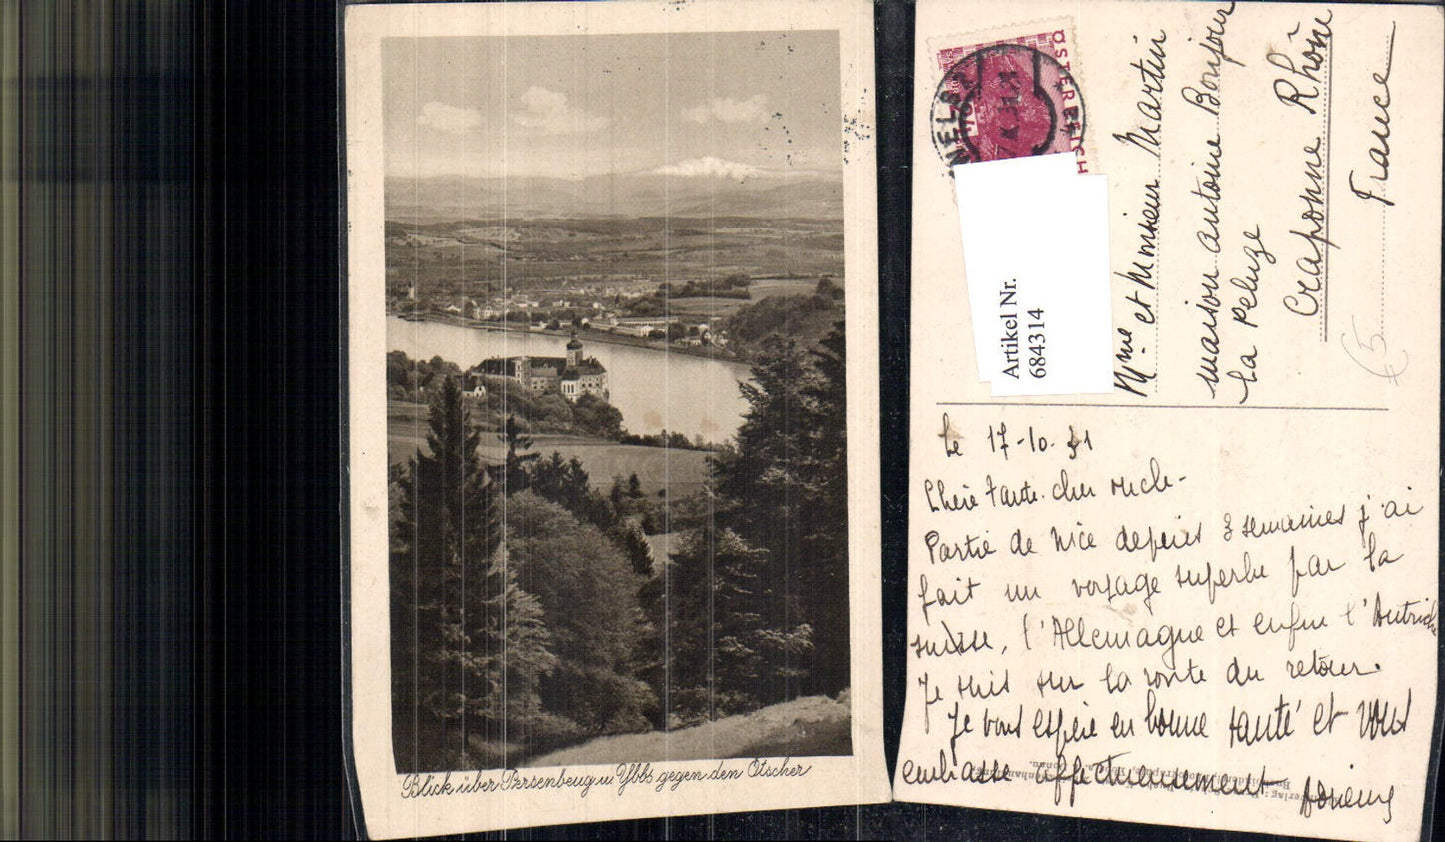 Blick über Persenbeug u. Ybbs gegen den Ötscher
ÖSTERREICH
WELS
Artikel Nr.
684314
Mme et Monsieur Martin
maison antoine Bonjour
La Peluze
Craponne Rhône
France
5
Le 17-10-31
Chère tante. cher oncle-
Partie de Nice depuis 3 semaines j'ai
fait un voyage superbe par la
suisse, l'Allemagne et enfin l'Autriche
Je suis sur la route du retour.
Je vous espère en bonne santé et vous
embrasse affectueusement